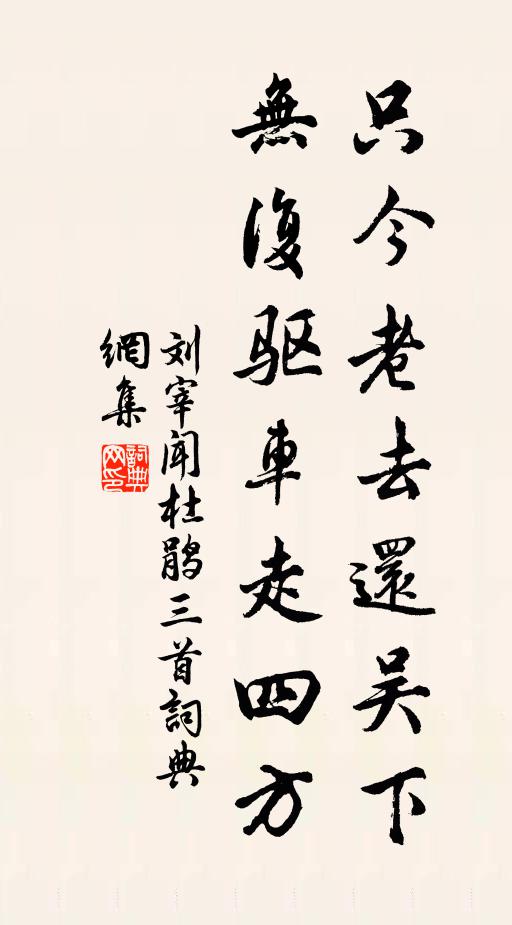 只今老去還吴下
無復驱車走四方
刘宰闻杜鹃三首詞典
網集
詞典
网印